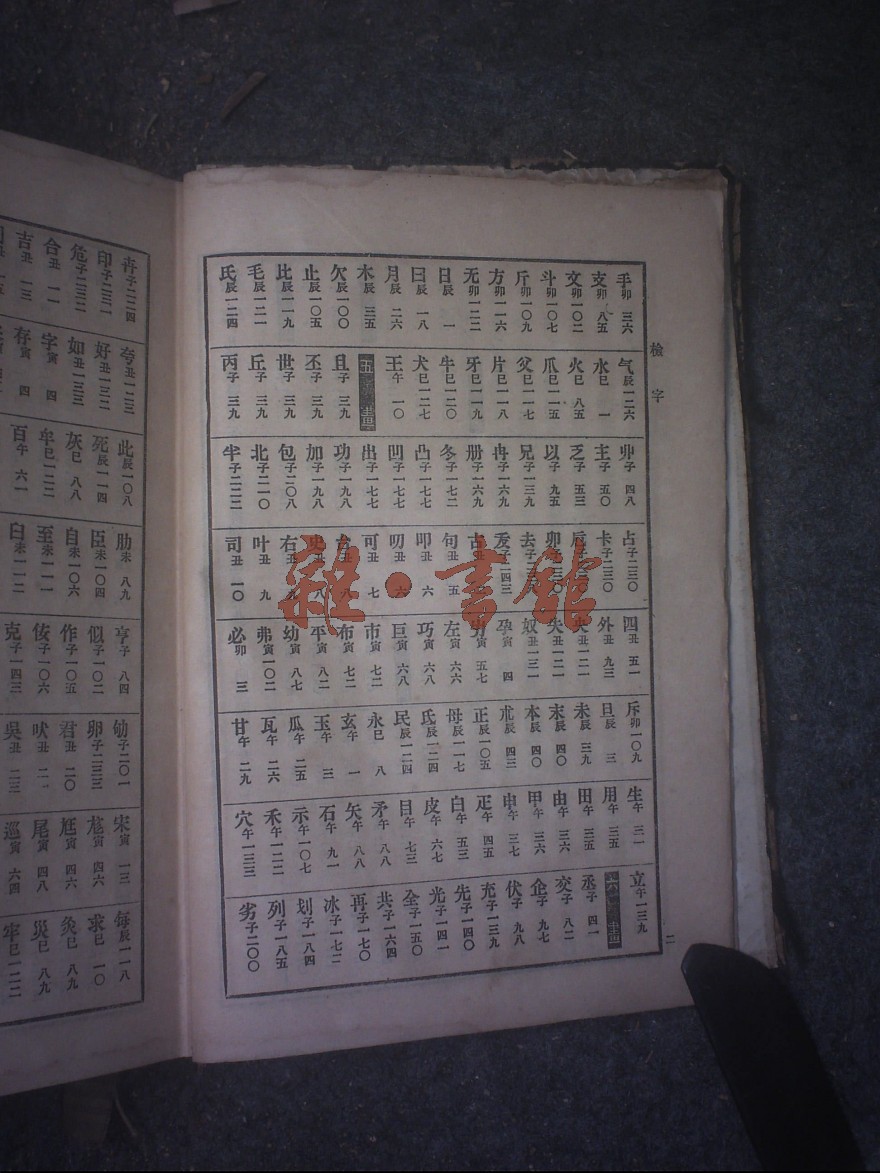 檢字
手卯三六 支卯八五 文卯一〇二 斗卯一〇七 斤卯一〇九 方卯一一六 无卯一二二 日辰一 曰辰一八 月辰二六 木辰三五 欠辰一〇〇 止辰一〇五 比辰一一九 毛辰一二一 氏辰一二四
气辰一二六 水巳一 火巳八五 爪巳一一五 父巳一一六 片巳一一八 牙巳一一九 牛巳一二〇 犬巳一二七 王午一〇 五畫 且子三九 丕子三九 世子三九 丘子三九 丙子三九
丱子四八 主子五〇 乏子五三 以子九五 兄子一三九 冉子一六九 册子一六九 冬子一七二 凸子一七七 凹子一七七 出子一七七 功子一九八 加子一九八 包子二〇八 北子二一〇 半子二二二
占子二三〇 卡子二三〇 卯子 去子 子二四三 古丑 句丑五 叩丑六 叨丑六 可丑七 台丑八 史丑八 右丑九 叶丑九 司丑一〇
四丑五一 外丑九三 央丑一二一 失丑一二一 奴丑一三一 孕寅四 寅五七 左寅六八 巧寅六八 巨寅六八 市寅七二 布寅七二 平寅八二 幼寅八七 弗寅一〇二 必卯三
斥卯一〇九 旦辰三 未辰三九 末辰四〇 本辰四〇 朮辰四三 正辰一〇五 母辰一一七 氐辰一二四 民辰一二四 永巳八 玄午一 玉午三 瓜午二五 瓦午二六 甘午二九
生午三一 用午三五 田午三五 由午三六 甲午三六 申午三七 疋午四五 白午五三 皮午六七 目午七三 矛午八八 矢午八八 石午九一 示午一〇七 禾午一二二 穴午一三三
立午一三九 六畫 丞子四一 交子八二 企子九七 伏子九八 充子一三九 先子一四〇 光子一四一 全子一五〇 共子一六四 再子一七〇 冰子一七二 划子一八四 列子一八五 劣子二〇〇
二
卉子二二四 印子二三二 危子二三二 合丑一一 吉丑一三
夸丑一二三 好丑一三二 如丑一三三 字寅四 存寅四
此辰一〇八 死辰一一四 灰巳八八 牟巳一二二 百午六一
肋未八九 臣未一〇四 自未一〇六 至未一一一 臼未一一二
亨子八四 似子一〇二 作子一〇五 侫子一〇六 克子一四三
劬子二〇一 卵子二三三 君丑二〇 吠丑二一 吳丑二三
宋寅一三 尨寅四六 尫寅四六 尾寅四八 巡寅六四
每辰一一八 求巳一〇 灸巳八九 災巳八九 牢巳一二二
雜·書館